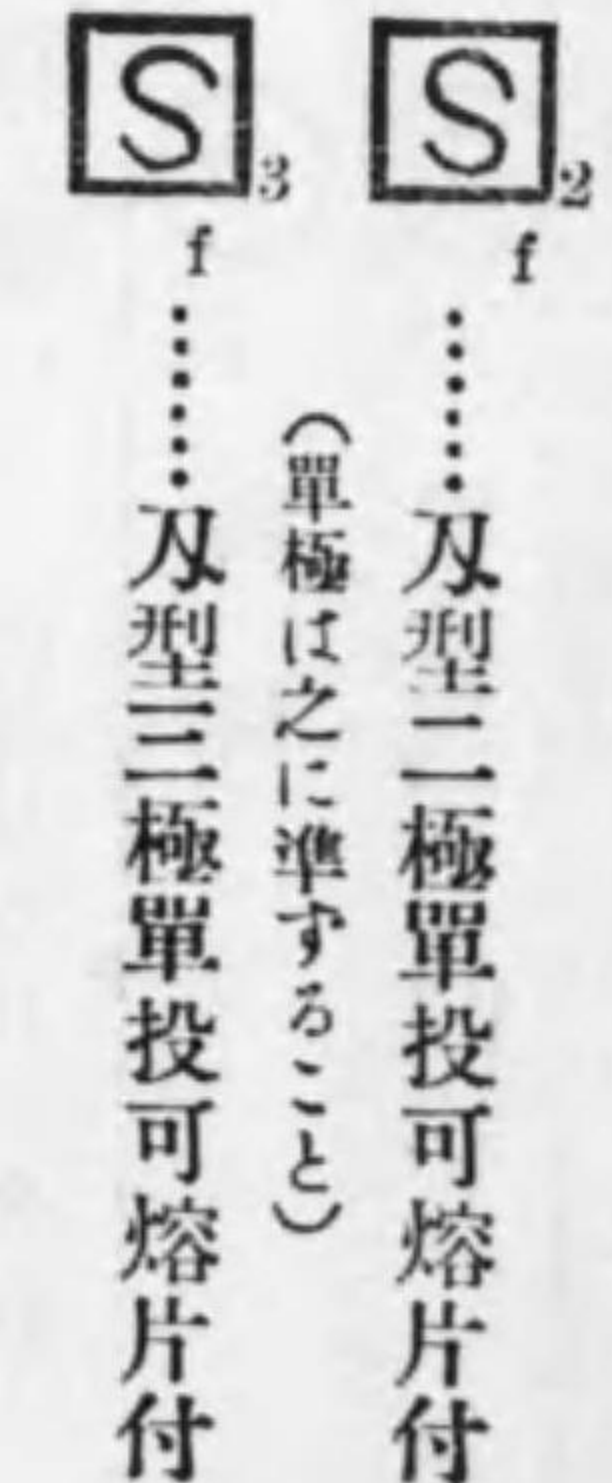 S2f……刄型二極單投可熔片付
(單極は之に準ずること)
S3f……刄型三極單投可熔片付